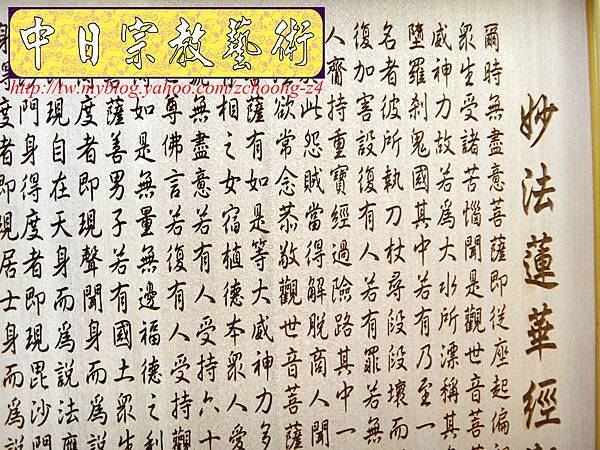 中日宗教藝術
http://tw.myblog.yahoo.com/zchoong-z4
妙法蓮華經
爾時無盡意菩薩即從座起偏
眾生受諸苦惱聞是觀世音菩
威神力故若為大水所漂稱其
墮羅剎鬼國其中若有乃至一
名者彼所執刀杖尋段段壞而
復加害設復有人若有罪若無
人齎持重寶經過險路其中一
此怨賊當得解脫商人聞
欲常念恭敬觀世音菩薩
薩有如是等大威神力多
相之女宿植德本眾人愛
無盡意若有人受持六十
尊佛言若復有人受持觀
如是無量無邊福德之利
薩善男子若有國土眾生
度者即現聲聞身而為說
現自在天身而為說法應
門身得度者即現毘沙門
身得度者即現居士身而為說